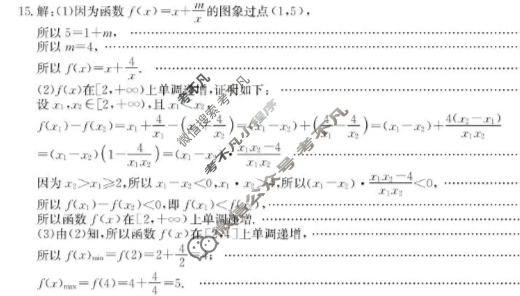 15.解:(1)因为函数 f(x)=x+m/x的图象过点(1,5),
所以 5=1+m,
所以 m=4,
所以 f(x)=x+4/x.
(2)f(x)在[2,+∞)上单调递增,证明如下:
设 x₁,x₂∈[2,+∞),且 x₁<x₂
f(x₁)-f(x₂)=x₁+4/x₁-( 4/ )=(x₁-x₂)+( 4/x₂)=(x₁-x₂)+4(x₂-x₁)/x₁x₂
=(x₁-x₂)(1-4/x₁x₂)=(x₁-x₂)·x₁x₂-4/x₁x₂
因为 x₂>x₁≥2,所以 x₁-x₂<0,x₁·x₂>4,所以(x₁-x₂)·x₁x₂-4/x₁x₂<0,
所以 f(x₁)-f(x₂)<0,即 f(x₁)<f
所以函数 f(x)在[2,+∞)上单调递增.
(3)由(2)知,所以函数 f(x)在[2,4]上单调递增,
所以 f(x)min=f(2)=2+4/2=4;
f(x)max=f(4)=4+4/4=5.
微信搜索 考不凡
考不凡小程序
微信公众号:考不凡